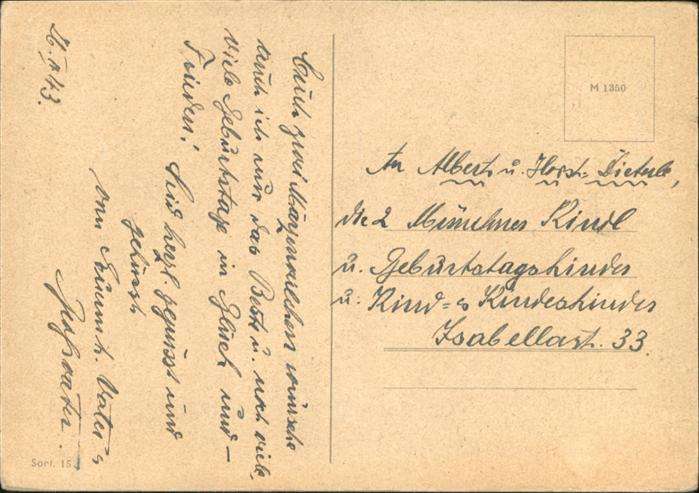 26.II.43.
Euch zwei Märzveilchen wünsche
auch ich nur das Beste u. noch viele,
viele Geburtstage in Glück und
Frieden! Seid herzl. gegrüsst und
geküsst
vom Vater u.
Großvater.
M 1350
An Albert u. Horst Dieterle,
die 2 Münchner Kindl
u. Geburtstagskinder
u. Kind= u Kindeskinder
Isabellastr. 33.
Sort. 15